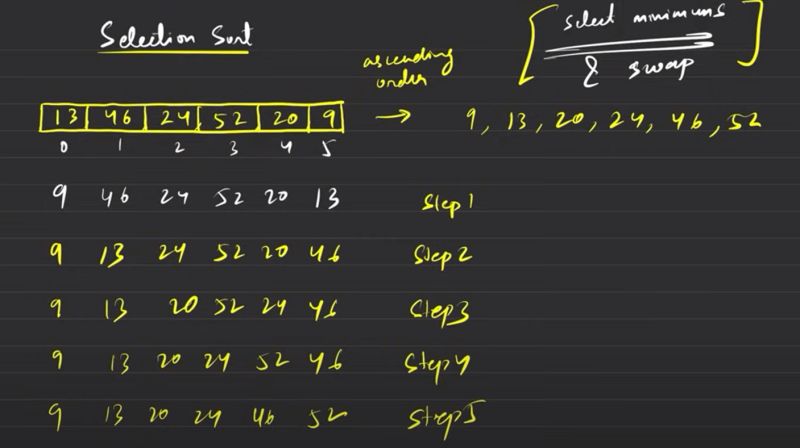 Selection Sort
[select minimums
& swap]
ascending
order
13 46 24 52 20 9 → 9, 13, 20, 24, 46, 52
0 1 2 3 4 5
9 46 24 52 20 13 Step1
9 13 24 52 20 46 Step2
9 13 20 52 24 46 Step3
9 13 20 24 52 46 Step4
9 13 20 24 46 52 Step5